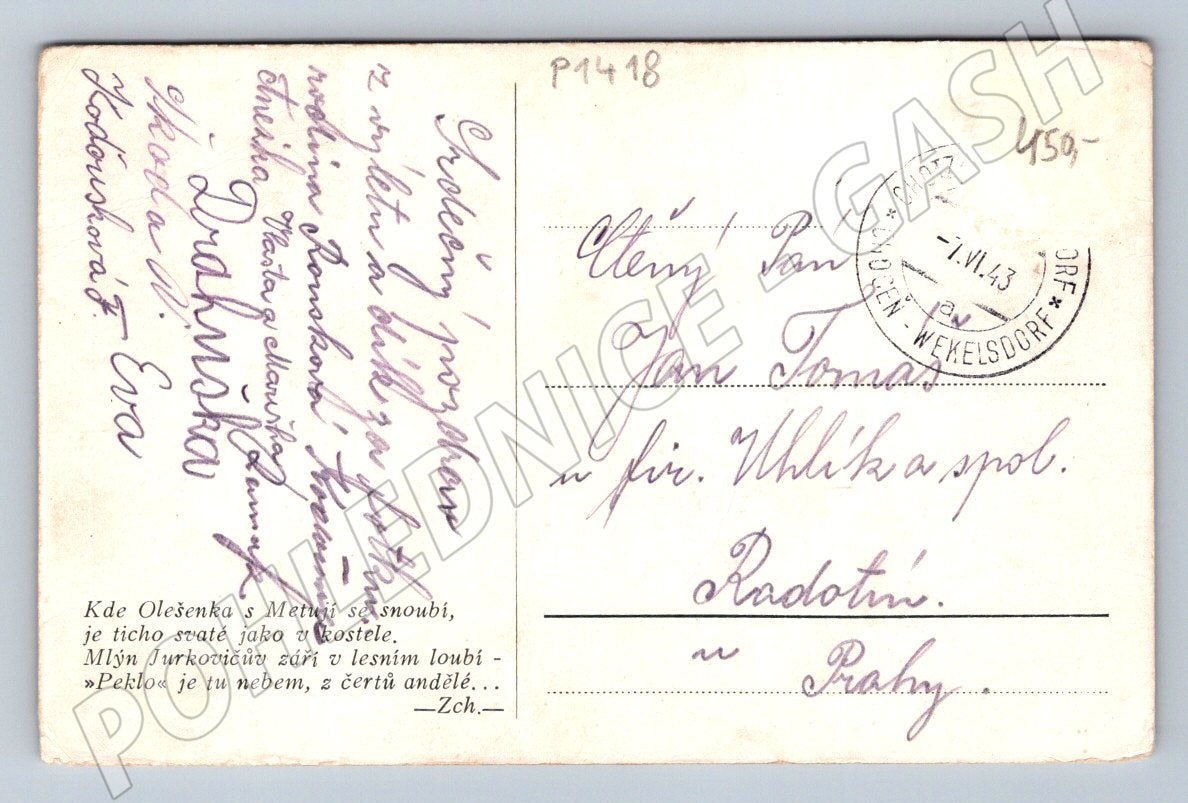 P1418
450,-
Srdečný pozdrav
z výletu a dík za
rodina Rouskova
dneska Vlasta a Maruška
Drahuška
Škoda V.
Kodousková F. Eva
Kde Olešenka s Metují se snoubí,
je ticho svaté jako v kostele.
Mlýn Jurkovičův září v lesním loubí -
»Peklo« je tu nebem, z čertů andělé...
—Zch.—
Ctěný Pán
Jan Tomas
u fir. Uhlík a spol.
Radotín.
u Prahy.
-7.VI.43
a
WEKELSDORF *
POHLEDNICE - GASH